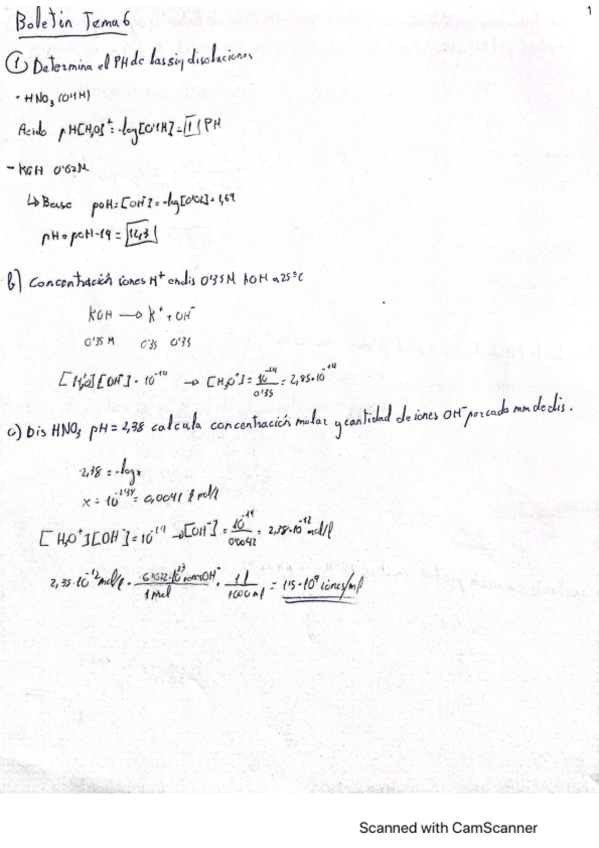 1
Boletín Tema 6
① Determina el PH de las sig disoluciones
· HNO₃ (0'1M)
Acido pH[H₃O]⁺ = -log[0'1M] = 1 PH
- KOH 0'02M
↳ Base pOH = [OH⁻] = -log[0'02] = 1,69
pH = pOH - 14 = 12,31
b) Concentración iones H⁺ en dis 0'35M KOH a 25ºC
KOH → K⁺ + OH⁻
0'35 M 0'35 0'35
[H₃O⁺][OH⁻] = 10⁻¹⁴ → [H₃O⁺] = 10⁻¹⁴/0'35 = 2,85·10⁻¹⁴
c) Dis HNO₃ pH = 2,38 calcula concentración molar y cantidad de iones OH⁻ por cada mm de dis.
2,38 = -logx
x = 10⁻²'³⁸ = 0,0041 mol/l
[H₃O⁺][OH⁻] = 10⁻¹⁴ → [OH⁻] = 10⁻¹⁴/0'0042 = 2,38·10⁻¹² mol/l
2,38·10⁻¹² mol/l · 6'022·10²³ iones OH⁻/1 Mol · 1 l/1000 ml = 1'15·10⁹ iones/ml
Scanned with CamScanner